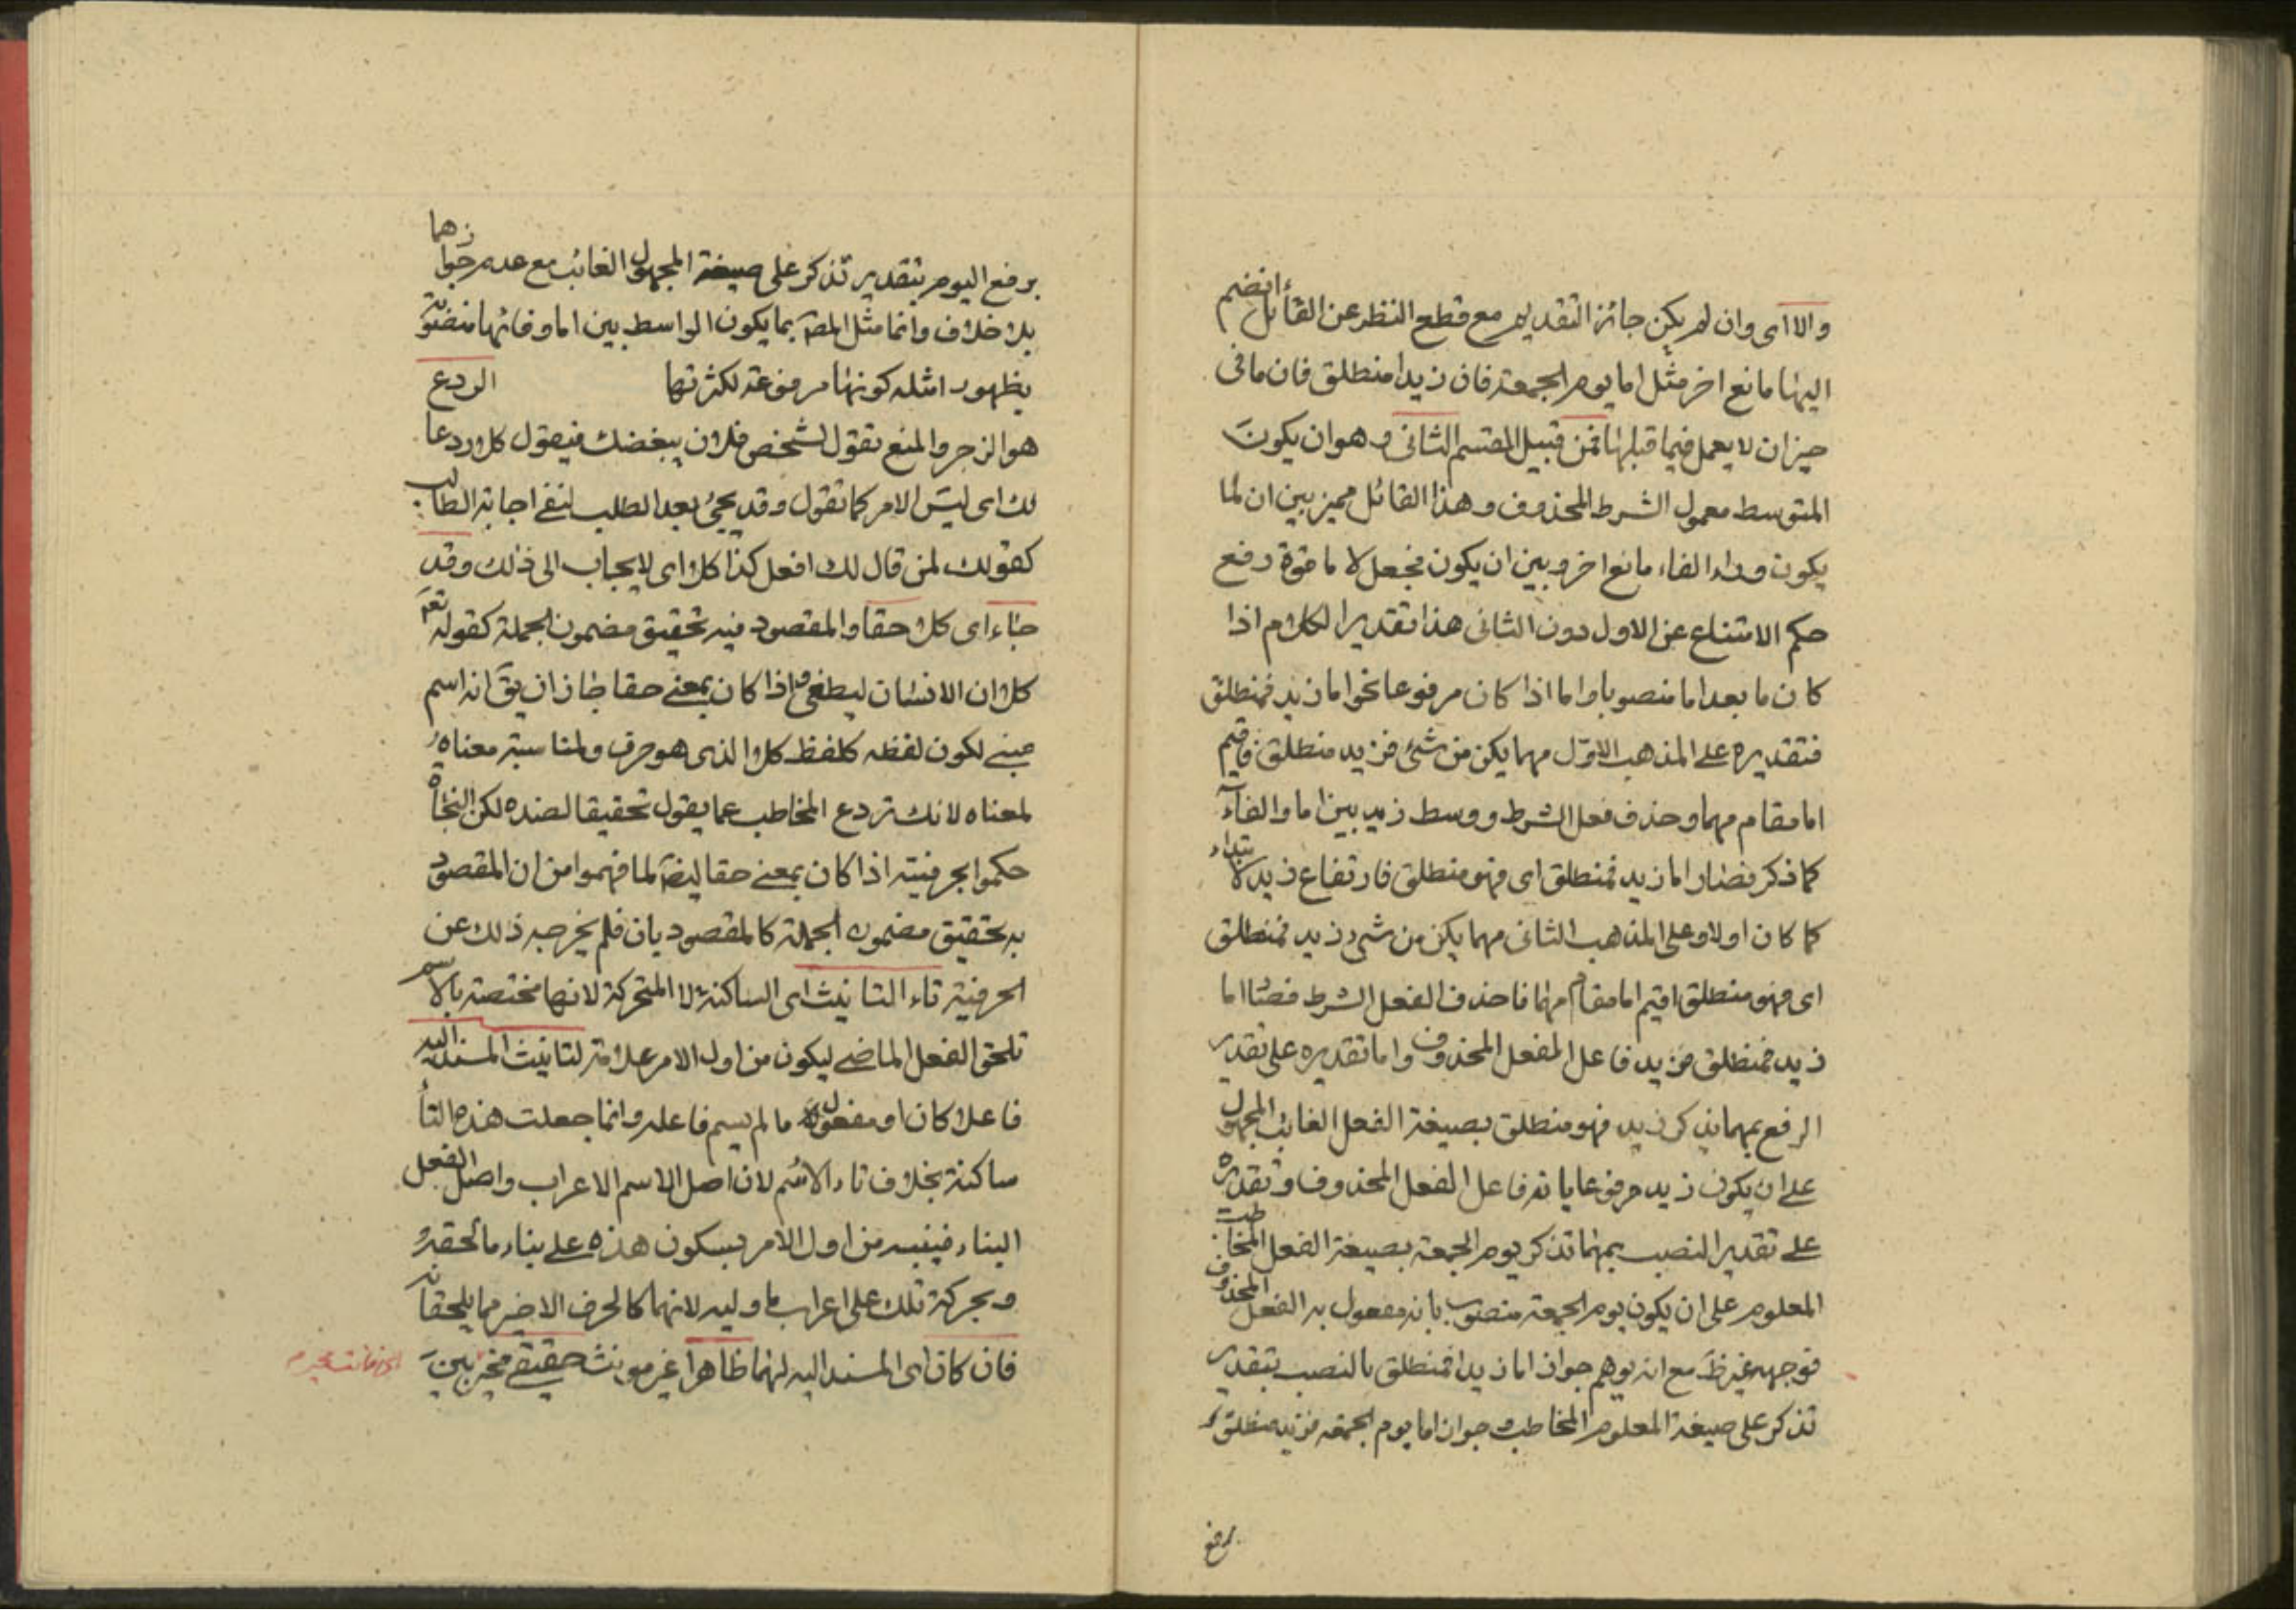 والا اى وان لم يكن جائز التقديم مع قطع النظر عن الفاء بل انضم
اليها مانع اخر مثل اما يوم الجمعة فان زيدا منطلق فان ما فى
حيز ان لا يعمل فيما قبلها فمن قبيل القسم الثانى وهو ان يكون
المتوسط معمول الشرط المحذوف وهذا القائل مميز بين ان لما
يكون وراء الفاء مانع اخر وبين ان يكون فجعل لاما قوة رفع
حكم الامتناع عن الاول دون الثانى هذا تقدير الكلام اذا
كان ما بعد اما منصوبا واما اذا كان مرفوعا نحو اما زيد فمنطلق
فتقديره على المذهب الاول مهما يكن من شئ فزيد منطلق فاقيم
اما مقام مهما وحذف فعل الشرط ووسط زيد بين اما والفاء
كما ذكر فصار اما زيد فمنطلق اى فهو منطلق فارتفاع زيد بالابتداء
كما كان اولا وعلى المذهب الثانى مهما يكن من شئ زيد فمنطلق
اى فهو منطلق اقيم اما مقام مهما فاحذف الفعل الشرط فصار اما
زيد فمنطلق فزيد فاعل الفعل المحذوف واما تقديره على تقدير
الرفع بمهما يذكر زيد فهو منطلق بصيغة الفعل الغائب المجهول
على ان يكون زيد مرفوعا بانه فاعل الفعل المحذوف وتقديره
على تقدير النصب بمهما تذكر يوم الجمعة بصيغة الفعل المخاطب
المعلوم على ان يكون يوم الجمعة منصوب بانه مفعول به الفعل المحذوف
فوجهه غير ظ مع انه يوهم جواز اما زيدا فمنطلق بالنصب بتقدير
تذكر على صيغة المعلوم المخاطب وجواز اما يوم الجمعة فزيد منطلق
برفع
برفع اليوم بتقدير تذكر على صيغة المجهول الغائب مع عدم جوازهما
بلا خلاف وانما مثل المص بما يكون الواسط بين اما وفائها منصوبة
يظهور امثله كونها مرفوعة لكثرتها الردع
هو الزجر والمنع تقول لشخص فلان يبغضك فيقول كلا ردعا
لك اى ليس الامر كما تقول وقد يجئ بعد الطلب لنفى اجابة الطالب
كقولك لمن قال لك افعل كذا كلا اى لا يجاب الى ذلك وقد
جاء اى كلا حقا والمقصود منه تحقيق مضمون الجملة كقوله تعم
كلا ان الانسان ليطغى واذا كان بمعنى حقا جاز ان يق انه اسم
مبنى لكون لفظه كلفظ كلا الذى هو حرف ولمناسبة معناه
لمعناه لانك تردع المخاطب عما يقول تحقيقا لضده لكن النحاة
حكموا بحرفيته اذا كان بمعنى حقا ايضا لما فهموا من ان المقصود
به تحقيق مضمون الجملة كالمقصود بان فلم يخرجه ذلك عن
الحرفية تاء التانيث اى الساكنة لا المتحركة لانها مختصة بالاسم
تلحق الفعل الماضى ليكون من اول الامر علامة لتانيث المسند اليه
فاعلا كان او مفعول ما لم يسم فاعله وانما جعلت هذه التاء
ساكنة بخلاف تاء الاسم لان اصل الاسم الاعراب واصل الفعل
البناء فينبه من اول الامر بسكون هذه على بناء ما لحقته
وبحركة تلك على اعراب ما وليه لانهما كالحرف الاخير مما يلحقانه
فان كان اى المسند اليه لهما ظاهرا غير مونث حقيقى فمخير بين